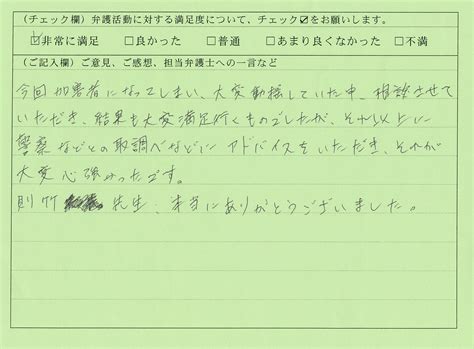 （チェック欄）弁護活動に対する満足度について、チェック☑をお願いします。
☑非常に満足 □良かった □普通 □あまり良くなかった □不満
（ご記入欄）ご意見、ご感想、担当弁護士への一言など
今回加害者になってしまい、大変動揺していた中、相談させて
いただき、結果も大変満足行くものでしたが、それ以上に
警察などとの取調べなどに アドバイスをいただき、それが
大変心強かったです。
則竹 先生、本当にありがとうございました。